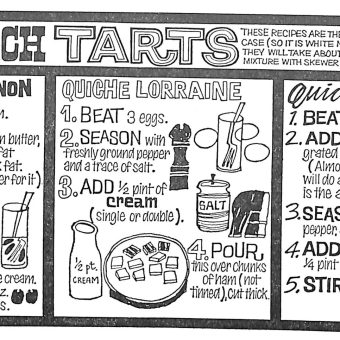 CH TARTS
THESE RECIPES ARE THE
CASE (SO IT IS WHITE N
THEY WILL TAKE ABOUT
MIXTURE WITH SKEWER
NON
n.
n butter,
fat
k fat.
er for it)
e cream.
z.
QUICHE LORRAINE
1. BEAT 3 eggs.
2. SEASON with
freshly ground pepper
and a trace of salt.
3. ADD ½ pint of
cream
(single or double).
SALT
½ pt.
CREAM
4. POUR
this over chunks
of ham (not
tinned), cut thick.
Quic
1. BEA
2. ADD
grated
(Almo
will do a
is the a
3. SEAS
pepper
4. ADD
¼ pint
5. STIR